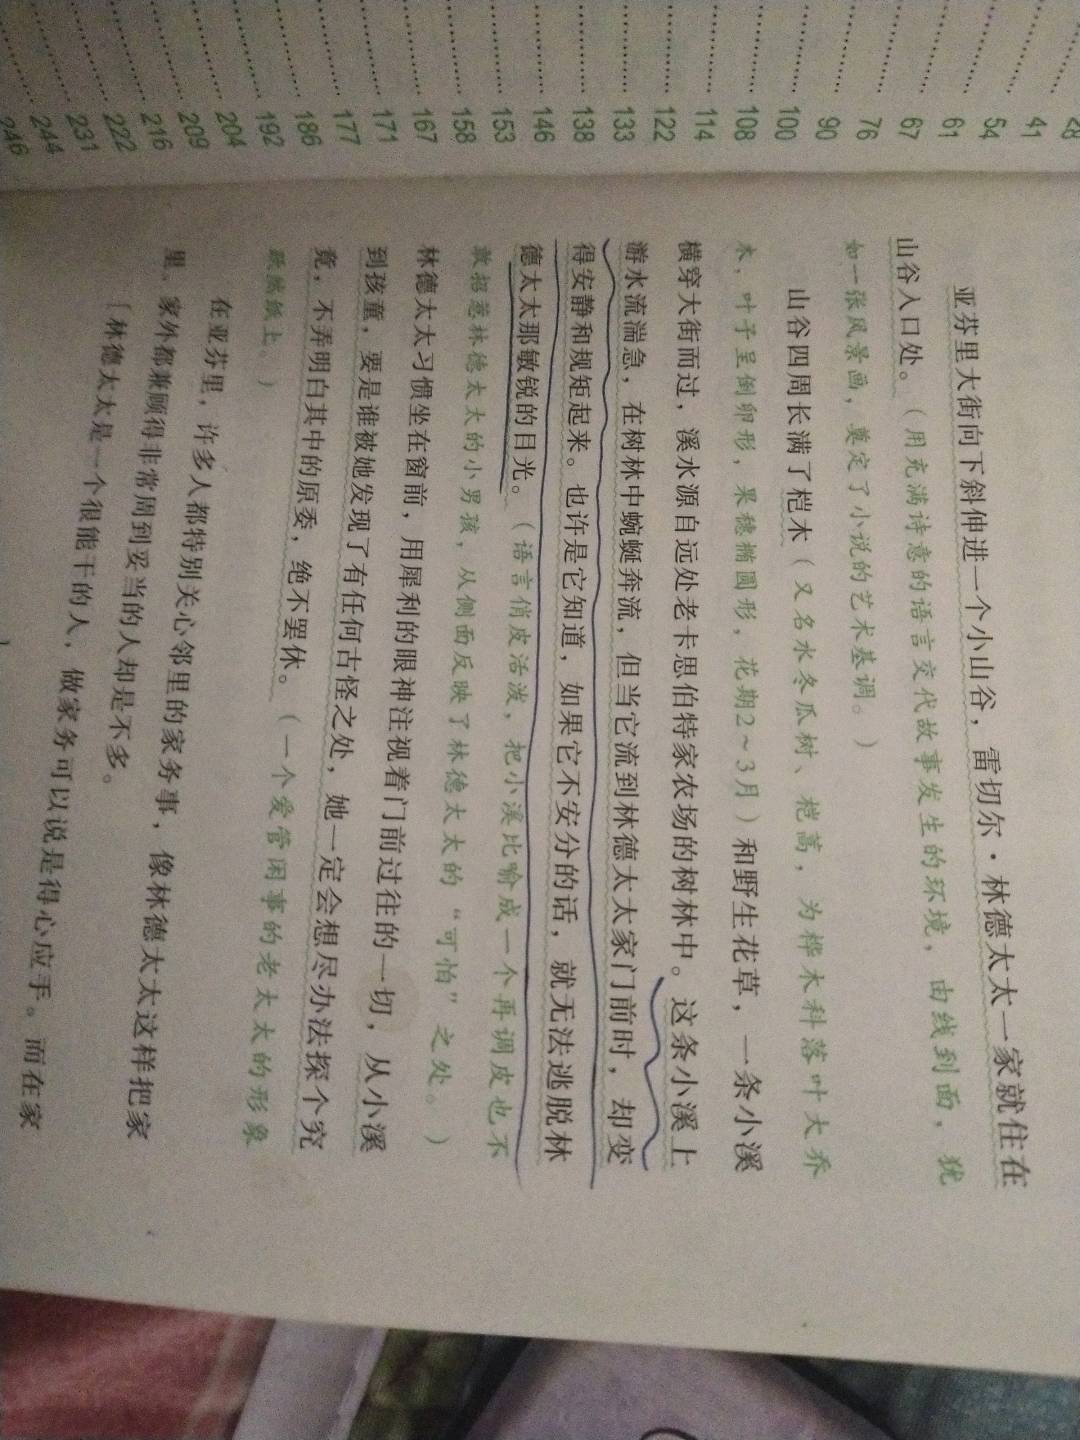 亚芬里大街向下斜伸进一个小山谷，雷切尔·林德太太一家就住在
山谷入口处。（用充满诗意的语言交代故事发生的环境，由线到面，犹
如一张风景画，奠定了小说的艺术基调。）
山谷四周长满了桤木（又名水冬瓜树、桤蒿，为桦木科落叶大乔
木，叶子呈倒卵形，果穗椭圆形，花期2～3月）和野生花草，一条小溪
横穿大街而过，溪水源自远处老卡思伯特家农场的树林中。这条小溪上
游水流湍急，在树林中蜿蜒奔流，但当它流到林德太太家门前时，却变
得安静和规矩起来。也许是它知道，如果它不安分的话，就无法逃脱林
德太太那敏锐的目光。（语言俏皮活泼，把小溪比喻成一个再调皮也不
敢招惹林德太太的小男孩，从侧面反映了林德太太的“可怕”之处。）
林德太太习惯坐在窗前，用犀利的眼神注视着门前过往的一切，从小溪
到孩童，要是谁被她发现了有任何古怪之处，她一定会想尽办法探个究
竟，不弄明白其中的原委，绝不罢休。（一个爱管闲事的老太太的形象
跃然纸上。）
在亚芬里，许多人都特别关心邻里的家务事，像林德太太这样把家
里、家外都兼顾得非常周到妥当的人却是不多。
〔林德太太是一个很能干的人，做家务可以说是得心应手。而在家
28
41
54
61
67
76
90
100
108
114
122
133
138
146
153
158
167
171
177
186
192
204
209
216
222
231
244
246